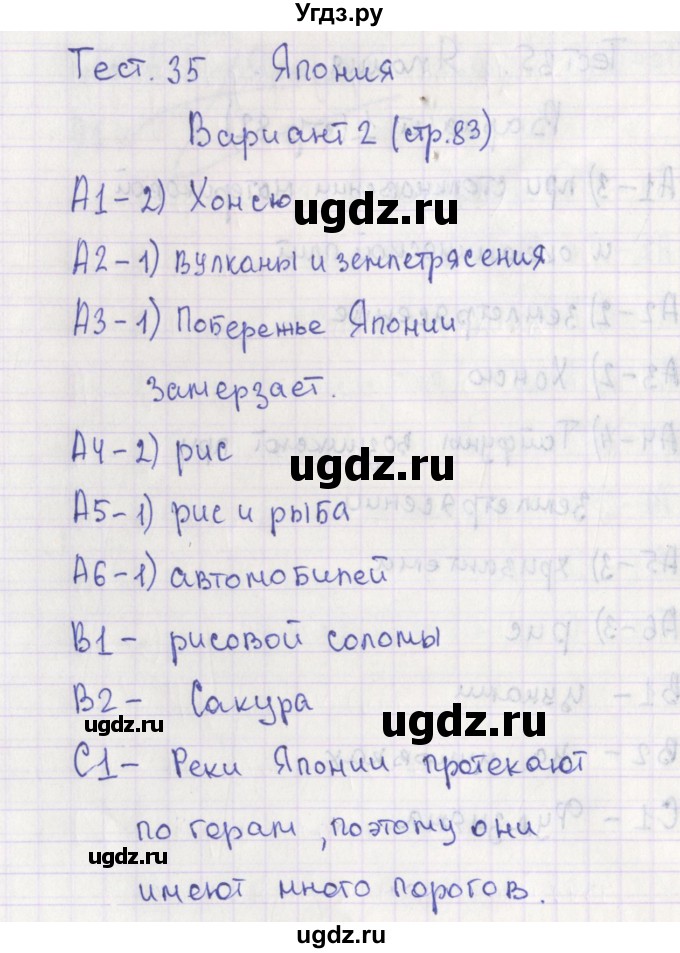 Угдз.ру
Тест. 35 Япония
Вариант 2 (стр.83)
А1-2) Хонсю
ugdz.ru
А2-1) вулканы и землетрясения
А3-1) Побережье Японии
замерзает.
А4-2) рис
ugdz.ru
А5-1) рис и рыба
А6-1) автомобилей
В1- рисовой соломы
В2- Сакура
ugdz.ru
ugdz.ru
С1- Реки Японии протекают
по горам, поэтому они
ugdz.ru
имеют много порогов.
ugdz.ru